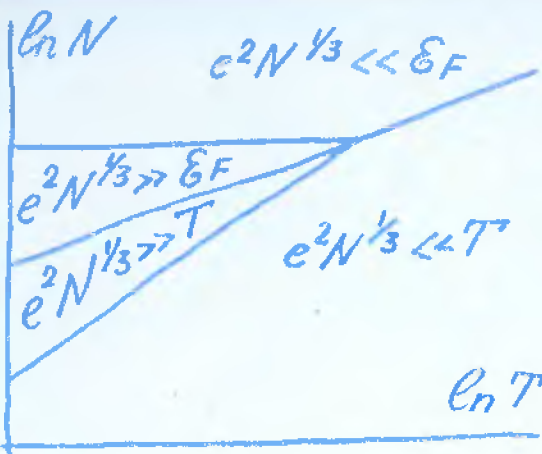 ln N
e²N^{1/3} << ℰ_F
e²N^{1/3} >> ℰ_F
e²N^{1/3} >> T
e²N^{1/3} << T
ln T